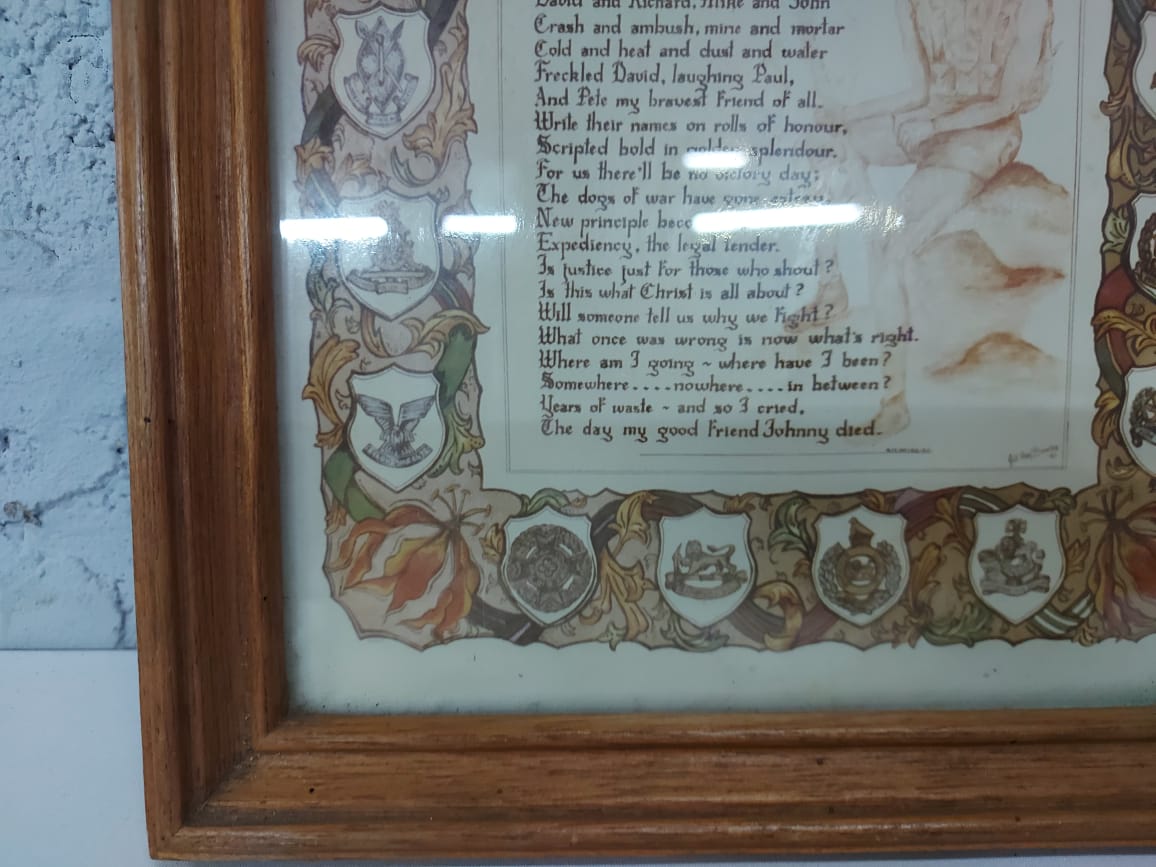 David and Richard, Mike and John
Crash and ambush, mine and mortar
Cold and heat and dust and water
Freckled David, laughing Paul,
And Pete my bravest friend of all.
Write their names on rolls of honour,
Scripted bold in golden splendour.
For us there'll be no victory day;
The dogs of war have gone
New principle
Expediency, the legal tender.
Is justice just for those who shout?
Is this what Christ is all about?
Will someone tell us why we fight?
What once was wrong is now what's right.
Where am I going ~ where have I been?
Somewhere....nowhere....in between?
Years of waste ~ and so I cried,
The day my good friend Johnny died.